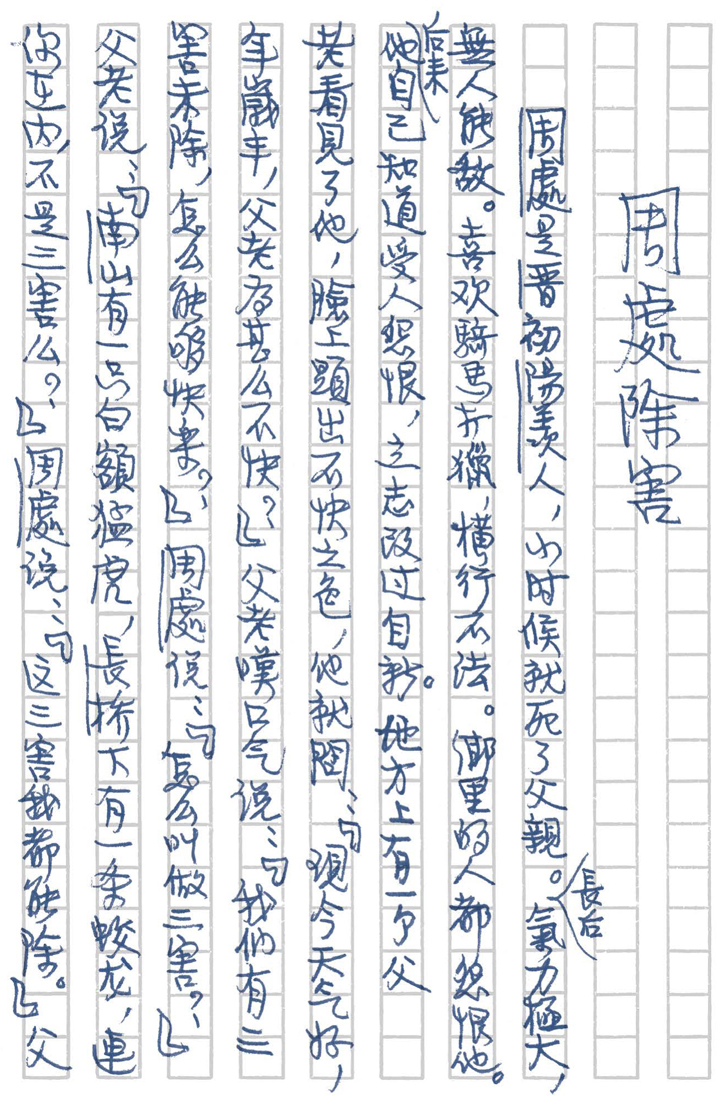 周處除害
周處是晋初陽羨人，小时候就死了父親。長后氣力極大，
無人能敌。喜欢騎馬打獵，横行不法。鄉里的人都怨恨他。
后来他自己知道受人怨恨，立志改过自新。地方上有一个父
老看見了他，臉上顕出不快之色，他就問：「現今天气好，
年歲丰，父老为甚么不快？」父老嘆口气说：「我們有三
害未除，怎么能够快楽？」周處说：「怎么叫做三害？」
父老说：「南山有一只白額猛虎，長桥下有一条蛟龙，連
你在内，不是三害么？」周處说：「这三害我都能除。」父